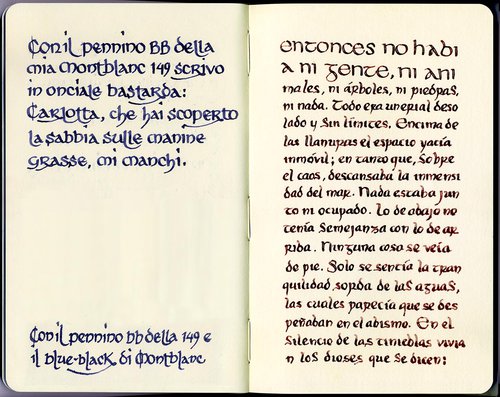 Con il pennino BB della
mia Montblanc 149 scrivo
in onciale bastarda:
Carlotta, che hai scoperto
la sabbia sulle manine
grasse, mi manchi.
Con il pennino bb della 149 e
il blue-black di Montblanc
entonces no habi
a ni gente, ni ani
males, ni árboles, ni piedras,
ni nada. Todo era un erial deso
lado y sin límites. Encima de
las llanuras el espacio yacía
inmóvil; en tanto que, sobre
el caos, descansaba la inmensi
dad del mar. Nada estaba jun
to ni ocupado. Lo de abajo no
tenía semejanza con lo de ar
riba. Ninguna cosa se veía
de pie. Solo se sentía la tran
quilidad sorda de las aguas,
las cuales parecía que se des
peñaban en el abismo. En el
silencio de las tinieblas vivía
n los dioses que se dicen: